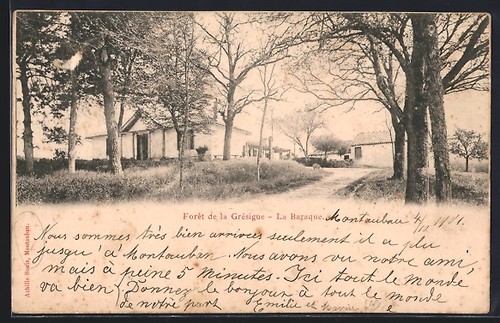 Forêt de la Grésigne - La Baraque.
Montauban
Nous sommes très bien arrivés seulement il a plu
jusqu'à Montauban. Nous avons vu notre ami,
mais à peine 5 minutes. Ici tout le monde
va bien. Donnez le bonjour à tout le monde
de notre part Emilie et
Achille Bouis, Montauban.